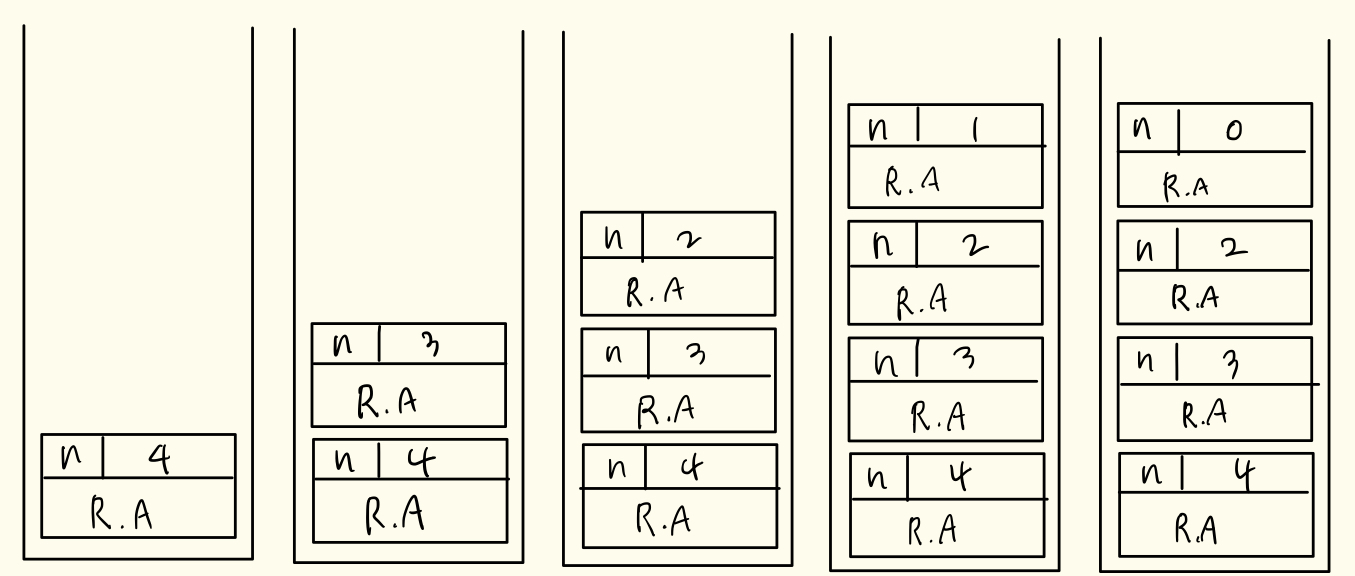 n 4
R.A
n 3
R.A
n 4
R.A
n 2
R.A
n 3
R.A
n 4
R.A
n 1
R.A
n 2
R.A
n 3
R.A
n 4
R.A
n 0
R.A
n 2
R.A
n 3
R.A
n 4
R.A